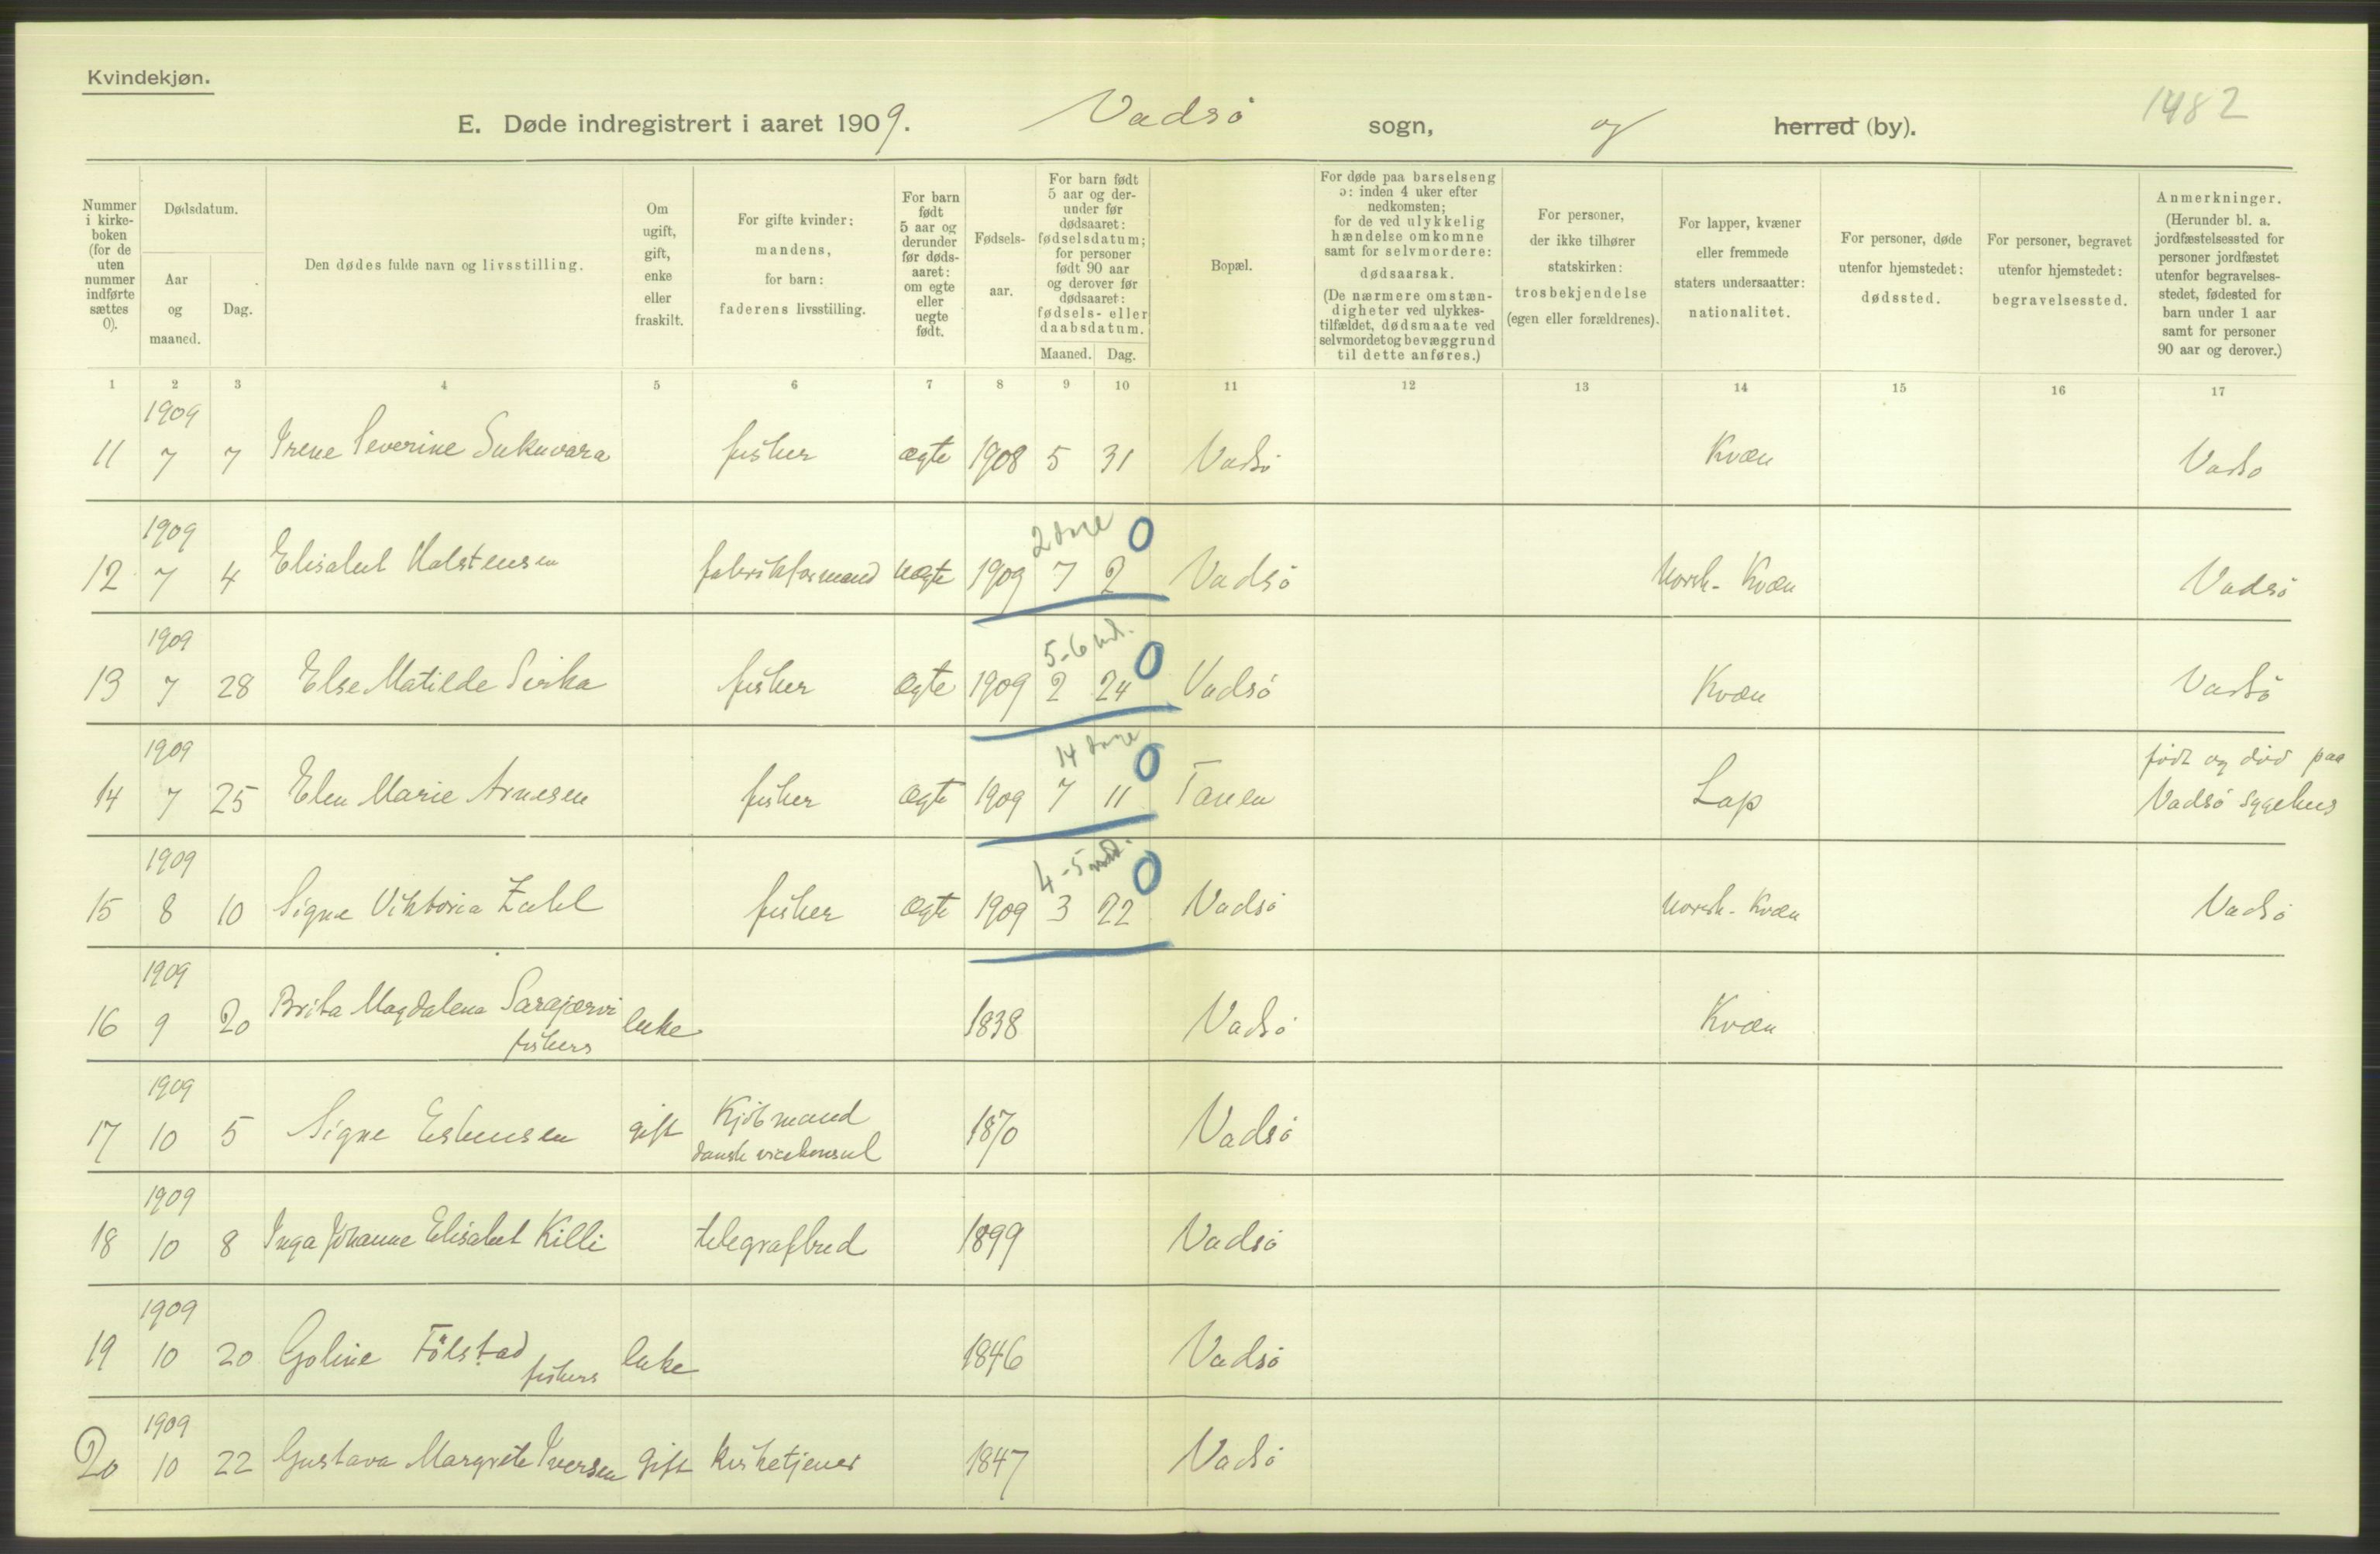 Kvindekjøn.
1482
E. Døde indregistrert i aaret 1909. Vadsö sogn, og herred (by).
Nummer i kirke- boken (for de uten nummer indførte sættes 0).
Dødsdatum.
Aar og maaned.
Dag.
Den dødes fulde navn og livsstilling.
Om ugift, gift, enke eller fraskilt.
For gifte kvinder: mandens, for barn: faderens livsstilling.
For barn født 5 aar og derunder før døds- aaret: om egte eller uegte født.
Fødsels- aar.
For barn født 5 aar og der- under før dødsaaret: fødselsdatum; for personer født 90 aar og derover før dødsaaret: fødsels- eller daabsdatum.
Maaned. Dag.
Bopæl.
For døde paa barselseng ɔ: inden 4 uker efter nedkomsten; for de ved ulykkelig hændelse omkomne samt for selvmordere: dødsaarsak. (De nærmere omstæn- digheter ved ulykkes- tilfældet, dødsmaate ved selvmordet og bevæggrund til dette anføres.)
For personer, der ikke tilhører statskirken: trosbekjendelse (egen eller forældrenes).
For lapper, kvæner eller fremmede staters undersaatter: nationalitet.
For personer, døde utenfor hjemstedet: dødssted.
For personer, begravet utenfor hjemstedet: begravelsessted.
Anmerkninger. (Herunder bl. a. jordfæstelsessted for personer jordfæstet utenfor begravelses- stedet, fødested for barn under 1 aar samt for personer 90 aar og derover.)
1 2 3 4 5 6 7 8 9 10 11 12 13 14 15 16 17
1909
11 7 7 Irene Severine Sukuvara fisker ægte 1908 5 31 Vadsö Kvæn Vadsö
1909 2 dage 0
12 7 4 Elisabet Halstensen fabrikformand uægte 1909 7 2 Vadsö Norsk-Kvæn Vadsö
1909 5-6 md. 0
13 7 28 Else Matilde Sirka fisker ægte 1909 2 24 Vadsö Kvæn Vadsö
1909 14 dage 0 född og död paa
14 7 25 Elen Marie Arnesen fisker ægte 1909 7 11 Tanen Lap Vadsö sygehus
1909 4-5 md. 0
15 8 10 Signe Viktoria Zahl fisker ægte 1909 3 22 Vadsö Norsk-Kvæn Vadsö
1909
16 9 20 Brita Magdalena Sarajærvi fiskers enke 1838 Vadsö Kvæn
1909
17 10 5 Signe Esbensen gift Kjöbmand dansk vicekonsul 1870 Vadsö
1909
18 10 8 Inga Johanne Elisabet Killi telegrafbud 1899 Vadsö
1909
19 10 20 Goline Fölstad fiskers enke 1846 Vadsö
1909
20 10 22 Gustava Margrete Iversen gift kirketjener 1847 Vadsö